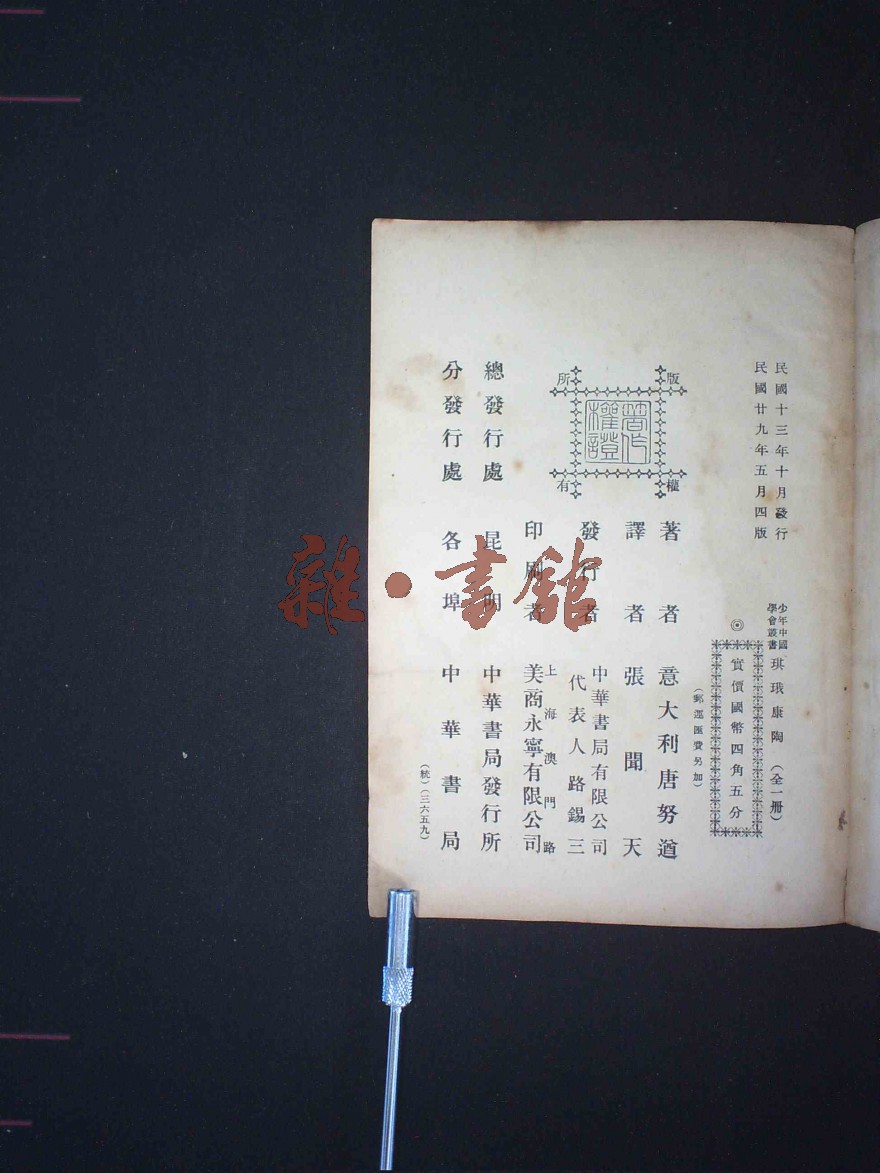 民國十三年十月發行
民國廿九年五月四版
少年中國
學會叢書
琪珴康陶（全一冊）
◎
實價國幣四角五分
（郵運匯費另加）
版權所有
著作權證
著者 意大利唐努遒
譯者 張聞天
發行者 中華書局有限公司
代表人路錫三
印刷者 上海澳門路
美商永寧有限公司
總發行處 昆明 中華書局發行所
分發行處 各埠 中華書局
（統）（三六五九）
雜·書館